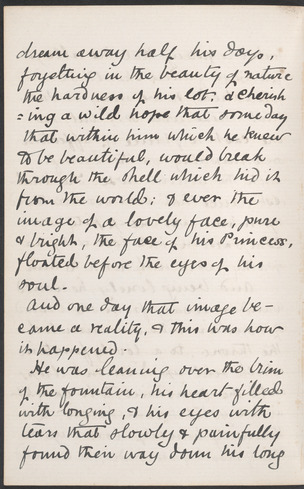 dream away half his days,
forgetting in the beauty of nature
the hardness of his lot; & cherish
=ing a wild hope that someday
that within him which he knew
to be beautiful, would break
through the shell which hid it
from the world; & ever the
image of a lovely face, pure
& bright, the face of his Princess,
floated before the eyes of his
soul.
And one day that image be-
came a reality, & this was how
it happened.
He was leaning over the brim
of the fountain, his heart filled
with longing, & his eyes with
tears that slowly & painfully
found their way down his long